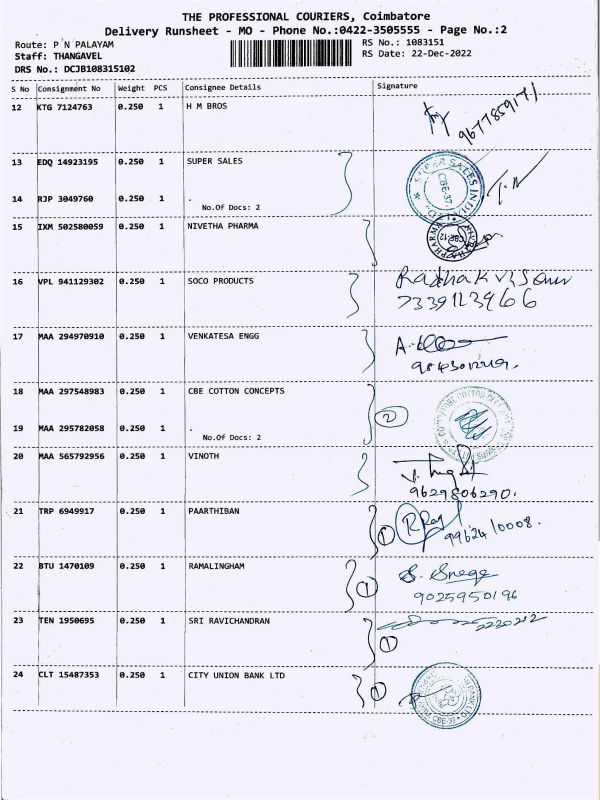 THE PROFESSIONAL COURIERS, Coimbatore
Delivery Runsheet - MO - Phone No.:0422-3505555 - Page No.:2
Route: P N PALAYAM RS No.: 1083151
Staff: THANGAVEL RS Date: 22-Dec-2022
DRS No.: DCJB108315102
S No Consignment No Weight PCS Consignee Details Signature
12 KTG 7124763 0.250 1 H M BROS
9677859171
13 EDQ 14923195 0.250 1 SUPER SALES
CBE-37
14 RJP 3049760 0.250 1 .
No.Of Docs: 2
15 IXM 502580059 0.250 1 NIVETHA PHARMA
CBE-12
16 VPL 941129302 0.250 1 SOCO PRODUCTS
7339123966
17 MAA 294970910 0.250 1 VENKATESA ENGG
18 MAA 297548983 0.250 1 CBE COTTON CONCEPTS
2
19 MAA 295782058 0.250 1 .
No.Of Docs: 2
20 MAA 565792956 0.250 1 VINOTH
9629806290.
21 TRP 6949917 0.250 1 PAARTHIBAN
1 9962410008.
22 BTU 1470109 0.250 1 RAMALINGHAM
1 S. Snega
9025950196
23 TEN 1950695 0.250 1 SRI RAVICHANDRAN
1
24 CLT 15487353 0.250 1 CITY UNION BANK LTD
1
CBE-37